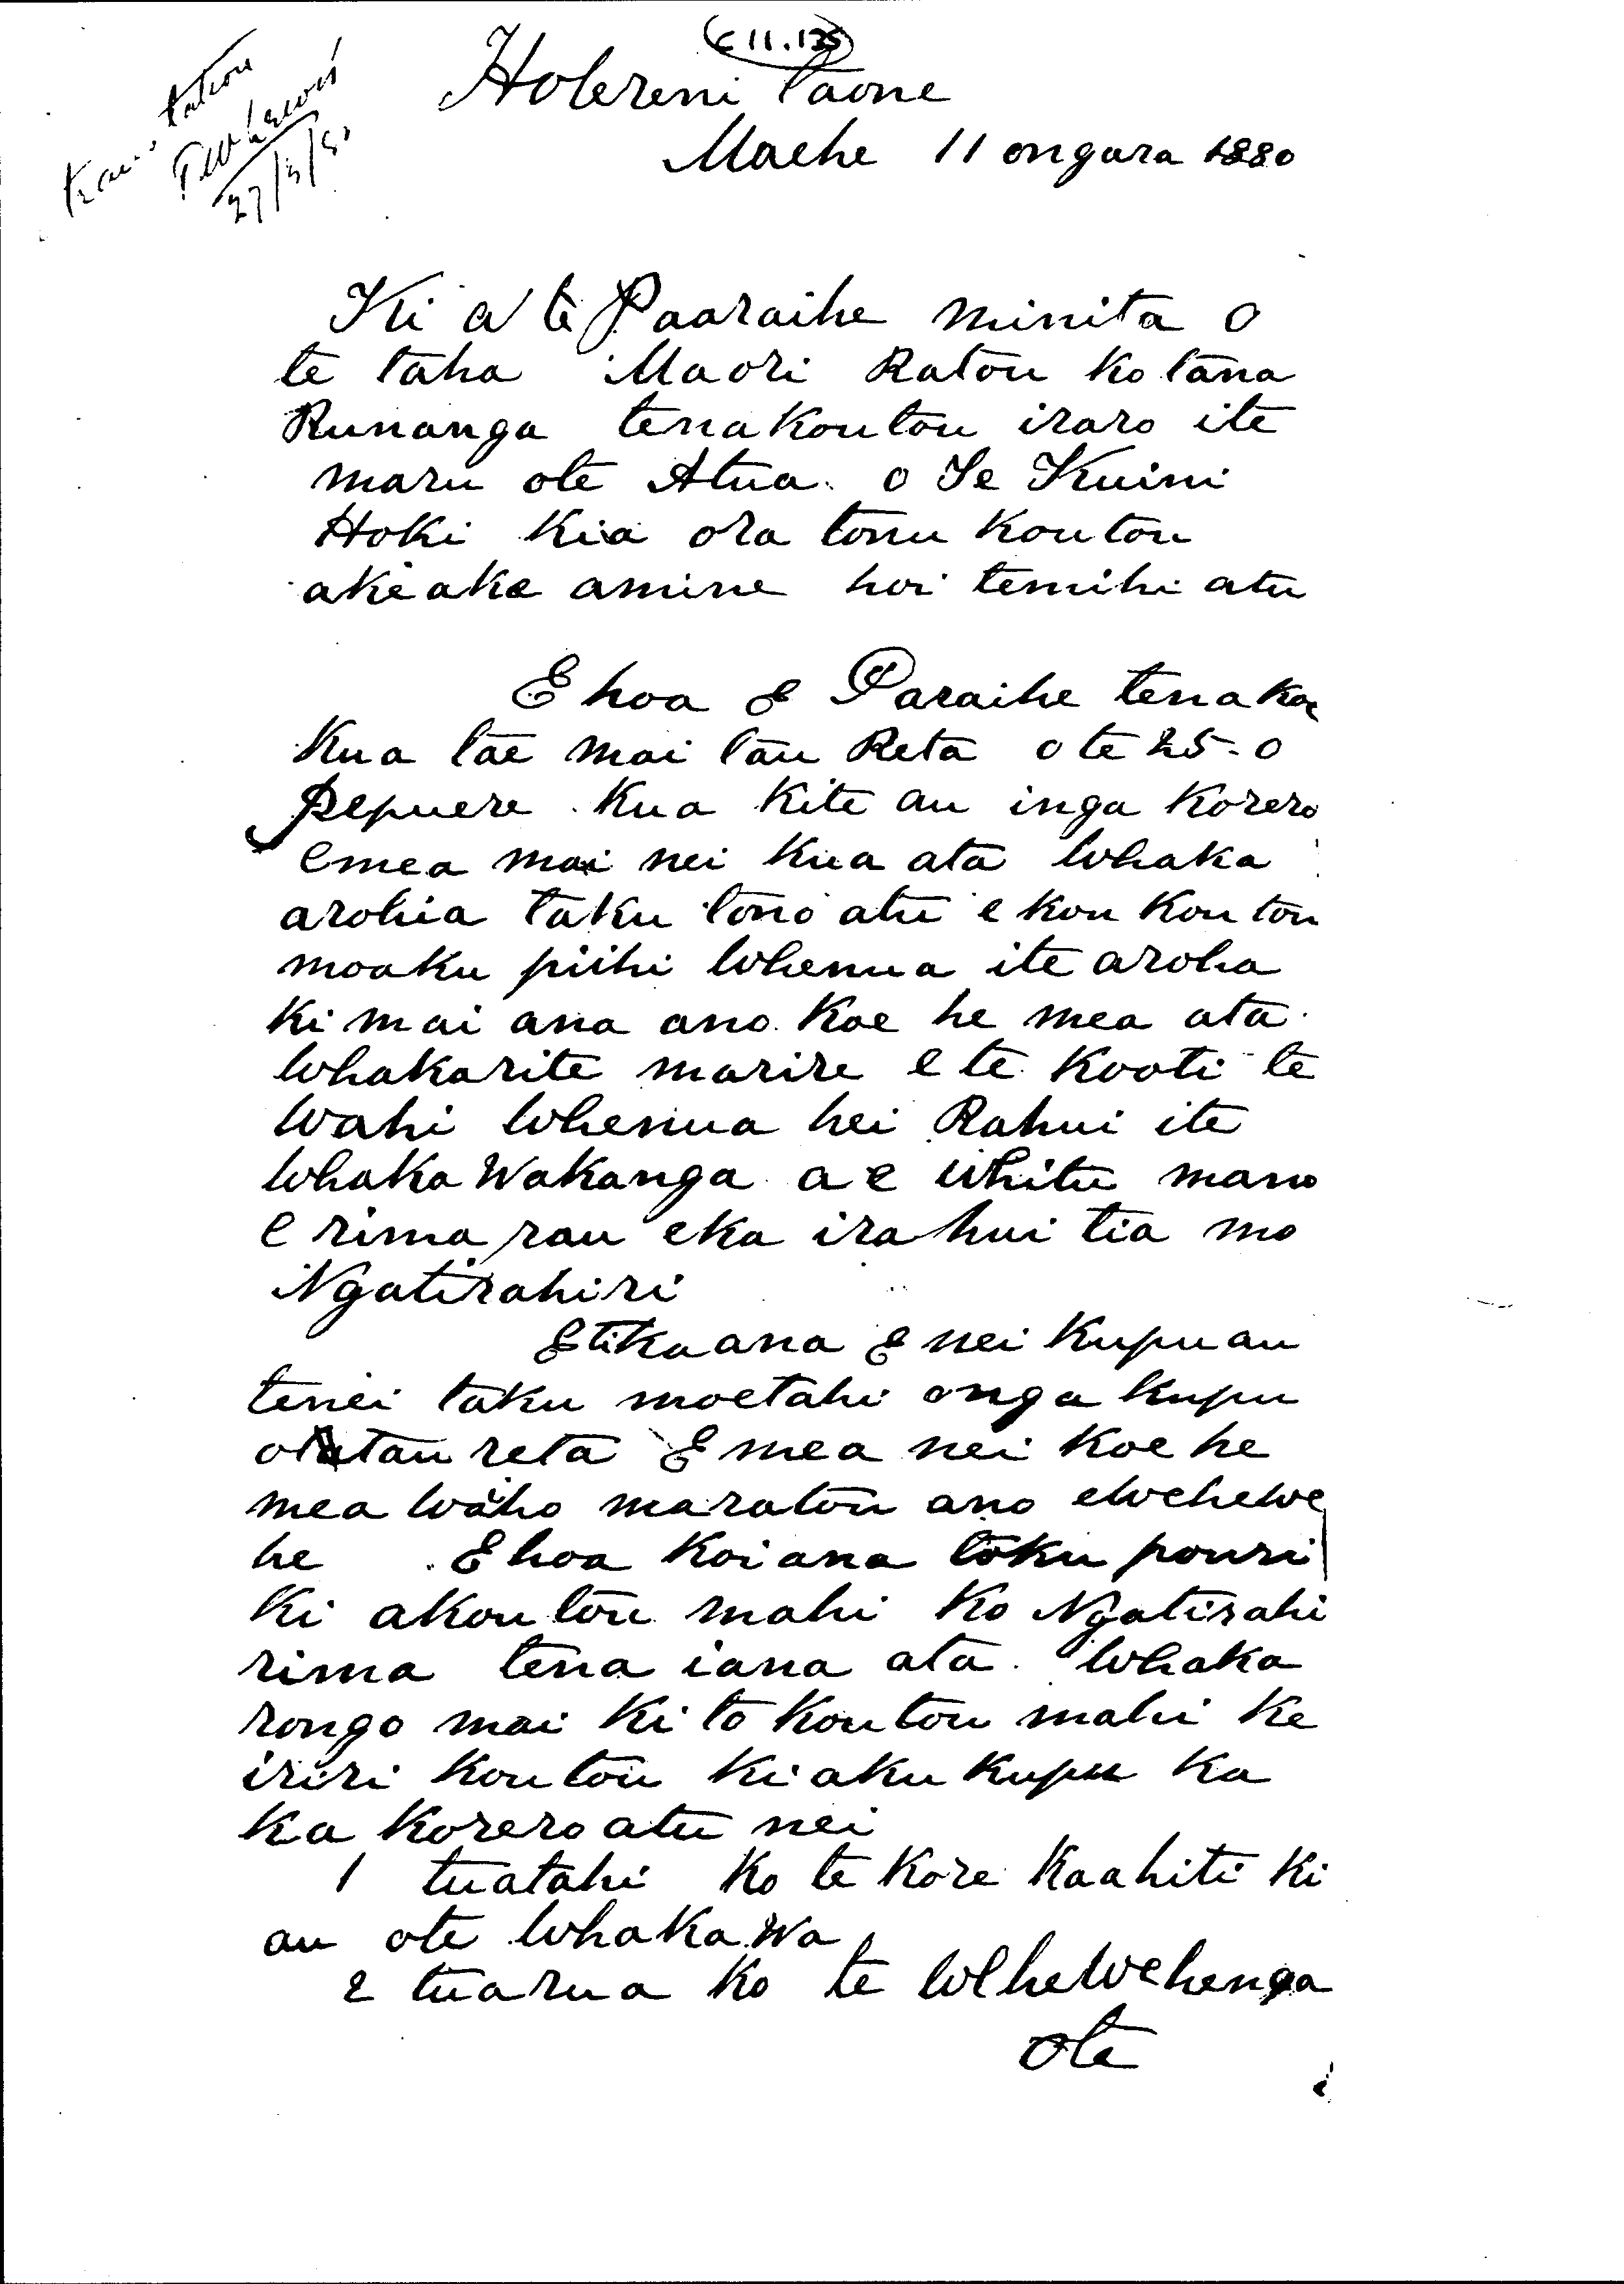 (E 11.135)
Translation
TWLewis
27/3/80
Holereni Taone
Maehe 11 ongara 1880
Ki a te Paaraihe minita o
te taha Maori Ratou ko tana
Runanga tenakoutou iraro ite
maru ote Atua. o Te Kuini
Hoki kia ora tonu koutou
akeake amine hoi temihi atu
E hoa E Paraihe tenakoe
Kua tae mai tau Reta o te 25-o
Pepuere kua kite au inga Korero
emea mai nei kua ata whaka
arohia taku tono atu e kou koutou
moaku piihi whenua ite aroha
ki mai ana ano koe he mea ata
whakarite marire e te Kooti te
wahi whenua hei Rahui ite
whakaWakanga a e whitu mano
e rima rau eka irahui tia mo
Ngatirahiri
Etikaana E nei kupu au
tenei taku moetahi onga kupu
otetau reta E mea nei koe he
mea waho maratou ano ewehewe
he Ehoa koiana toku pouri
ki akoutou mahi ko Ngatirahi
rima tena iana ata whaka
rongo mai ki to koutou mahi ke
iriri koutou kiaku kupu ka
ka korero atu nei
1 tuatahi ko te kore kaahiti ki
au ote whakaWa
2 tuarua ko te wlhewehenga
ote